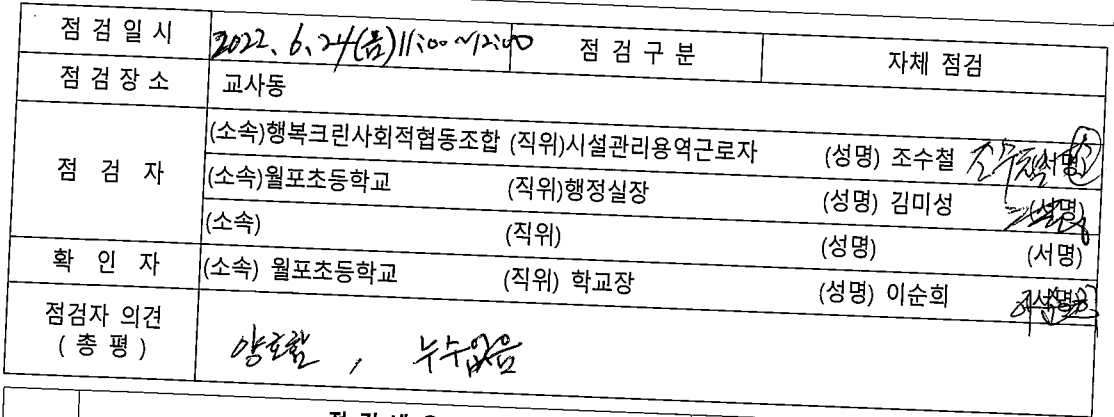 점 검 일 시 2022. 6. 24(금) 11:00 ~ 12:00 점 검 구 분 자체 점검
점 검 장 소 교사동
(소속)행복크린사회적협동조합 (직위)시설관리용역근로자 (성명) 조수철 조수철 (서명)
점 검 자 (소속)월포초등학교 (직위)행정실장 (성명) 김미성 (서명)
(소속) (직위) (성명) (서명)
확 인 자 (소속) 월포초등학교 (직위) 학교장 (성명) 이순희 (서명)
점검자 의견
( 총 평 ) 양호함 , 누수없음